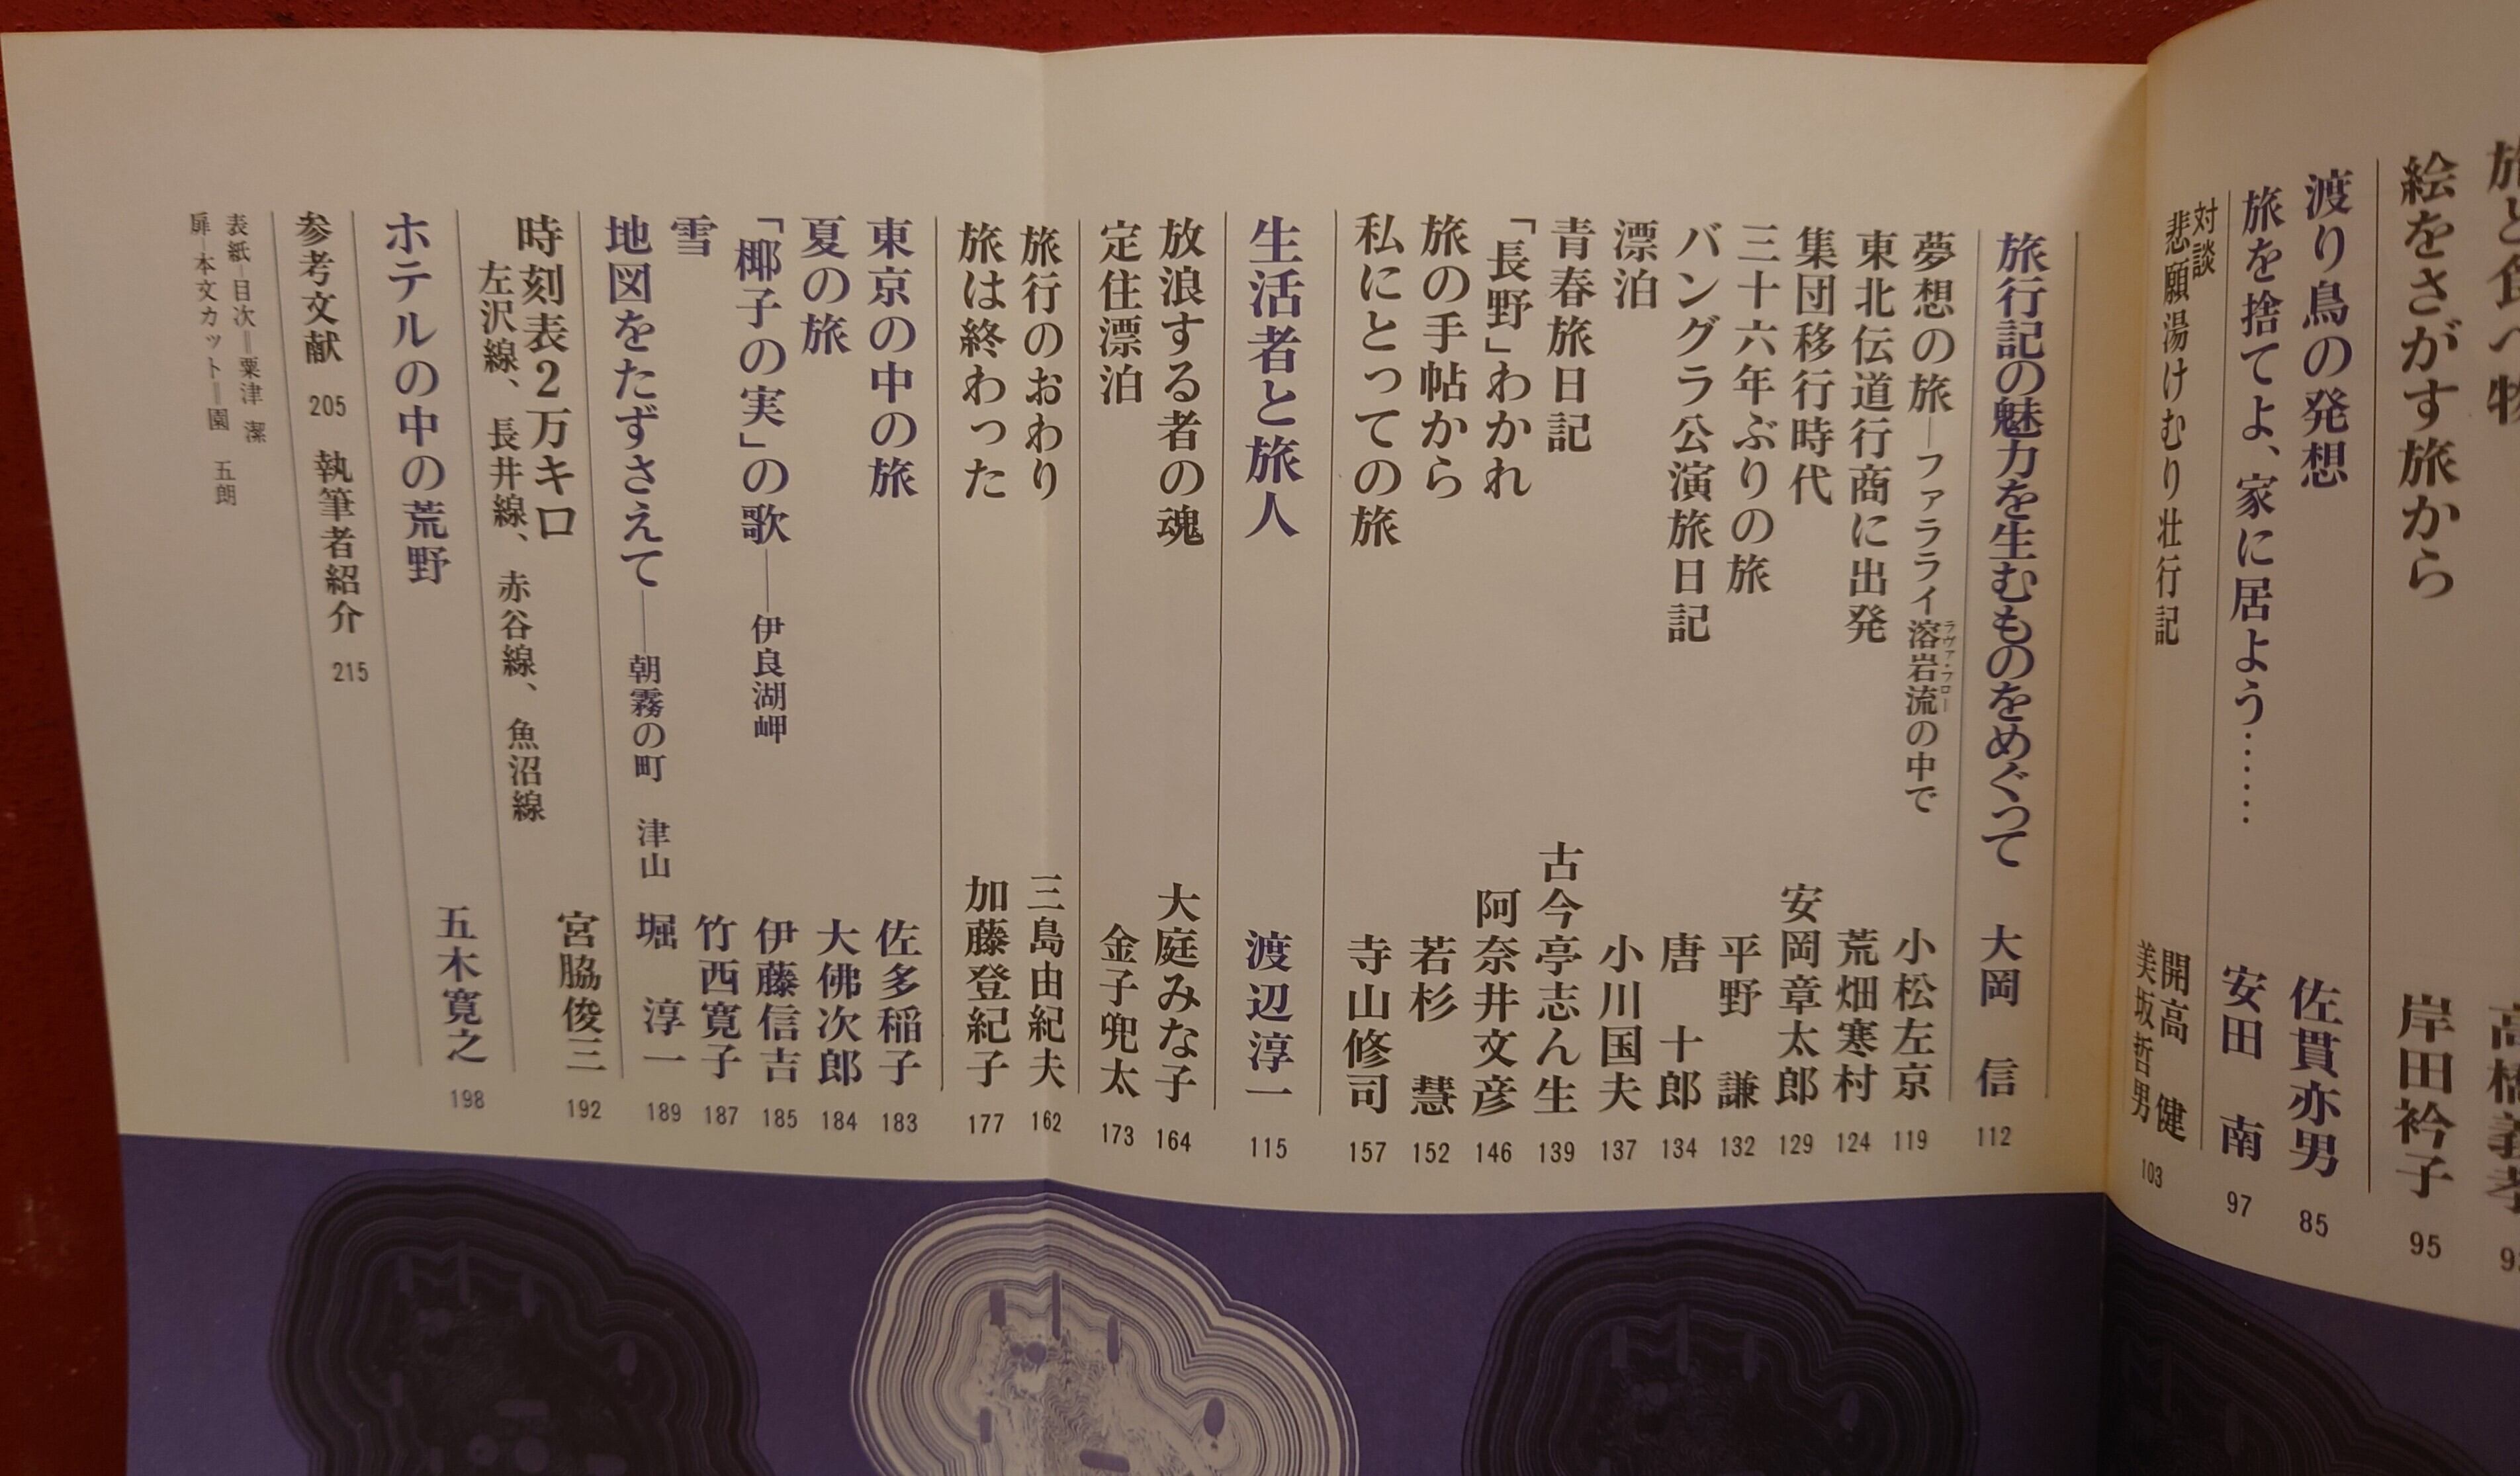 絵をさがす旅から 岸田衿子 95
渡り鳥の発想 佐貫亦男 85
旅を捨てよ、家に居よう…… 安田 南 97
対談
悲願湯けむり壮行記 開高 健 美坂哲男 103
旅行記の魅力を生むものをめぐって 大岡 信 112
夢想の旅―ファラライ溶岩流の中で 小松左京 119
ラヴァ・フロー
東北伝道行商に出発 荒畑寒村 124
集団移行時代 安岡章太郎 129
三十六年ぶりの旅 平野 謙 132
バングラ公演旅日記 唐 十郎 134
漂泊 小川国夫 137
青春旅日記 古今亭志ん生 139
「長野」わかれ 阿奈井文彦 146
旅の手帖から 若杉 慧 152
私にとっての旅 寺山修司 157
生活者と旅人 渡辺淳一 115
放浪する者の魂 大庭みな子 164
定住漂泊 金子兜太 173
旅行のおわり 三島由紀夫 162
旅は終わった 加藤登紀子 177
東京の中の旅 佐多稲子 183
夏の旅 大佛次郎 184
「椰子の実」の歌――伊良湖岬 伊藤信吉 185
雪 竹西寛子 187
地図をたずさえて――朝霧の町 津山 堀 淳一 189
時刻表2万キロ 宮脇俊三 192
左沢線、長井線、赤谷線、魚沼線
ホテルの中の荒野 五木寛之 198
参考文献 205 執筆者紹介 215
表紙―目次＝粟津 潔
扉―本文カット＝園 五朗